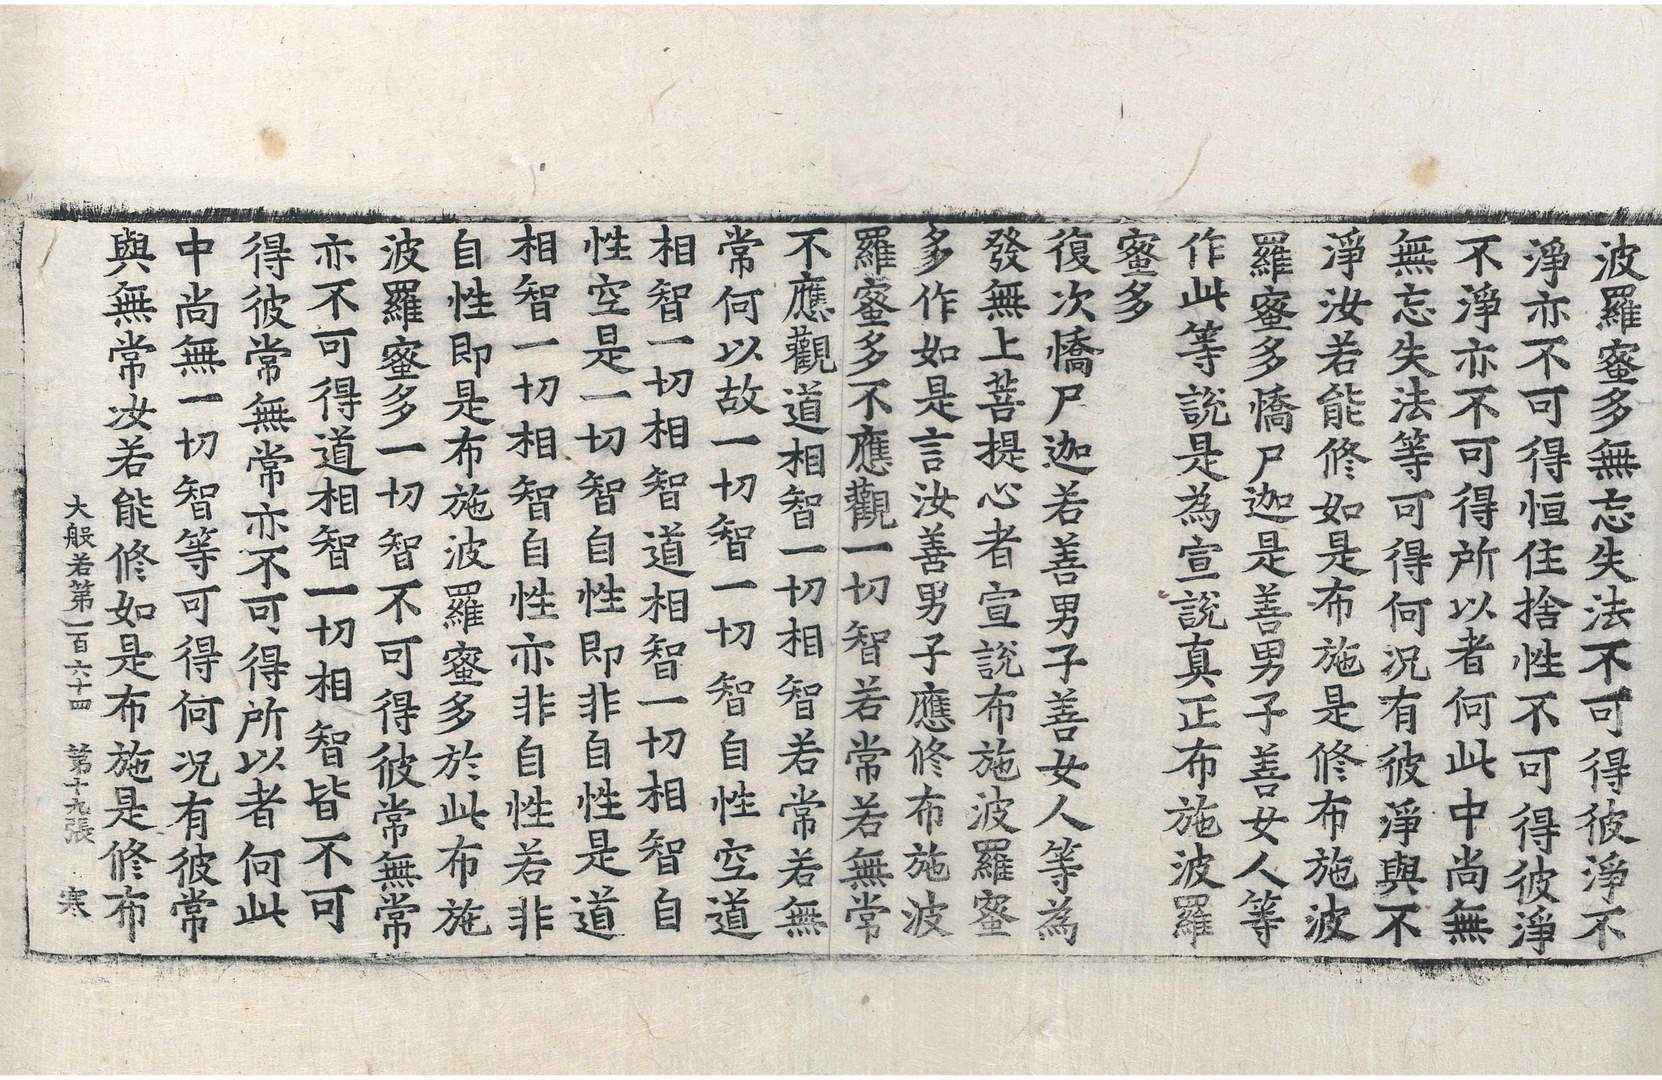 波羅蜜多無忘失法不可得彼淨不
淨亦不可得恒住捨性不可得彼淨
不淨亦不可得所以者何此中尚無
無忘失法等可得何況有彼淨與不
淨汝若能修如是布施是修布施波
羅蜜多憍尸迦是善男子善女人等
作此等說是為宣說真正布施波羅
蜜多
復次憍尸迦若善男子善女人等為
發無上菩提心者宣說布施波羅蜜
多作如是言汝善男子應修布施波
羅蜜多不應觀一切智若常若無常
不應觀道相智一切相智若常若無
常何以故一切智一切智自性空道
相智一切相智道相智一切相智自
性空是一切智自性即非自性是道
相智一切相智自性亦非自性若非
自性即是布施波羅蜜多於此布施
波羅蜜多一切智不可得彼常無常
亦不可得道相智一切相智皆不可
得彼常無常亦不可得所以者何此
中尚無一切智等可得何況有彼常
與無常汝若能修如是布施是修布
大般若第一百六十四 第十九張 寒